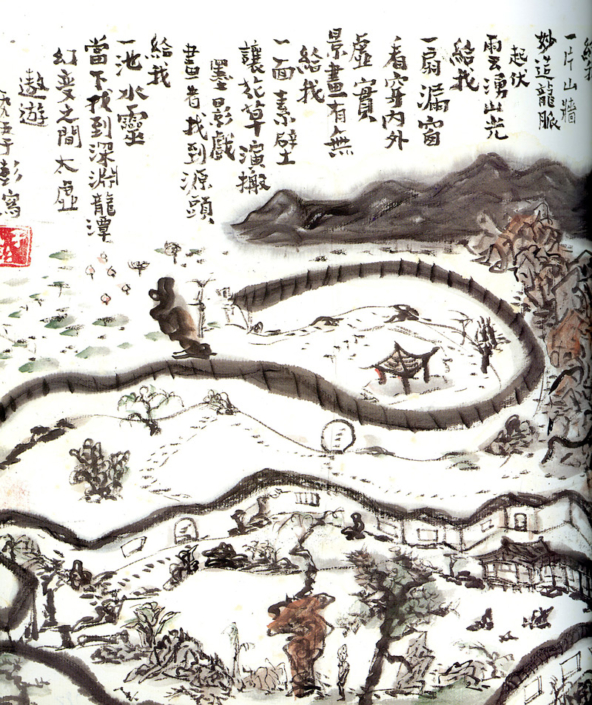 給我
一片山牆
妙造龍脈
起伏
雲湧山光
給我
一扇漏窗
看穿內外
虛實
景畫有無
給我
一面素壁
讓花草演搬
墨影戲
畫者找到源頭
給我
一池水靈
當下找到深淵龍潭
幻變之間太虛
遨遊